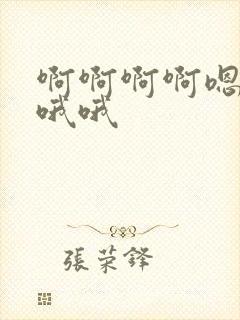 啊啊啊啊嗯
哦哦
張荣鋒